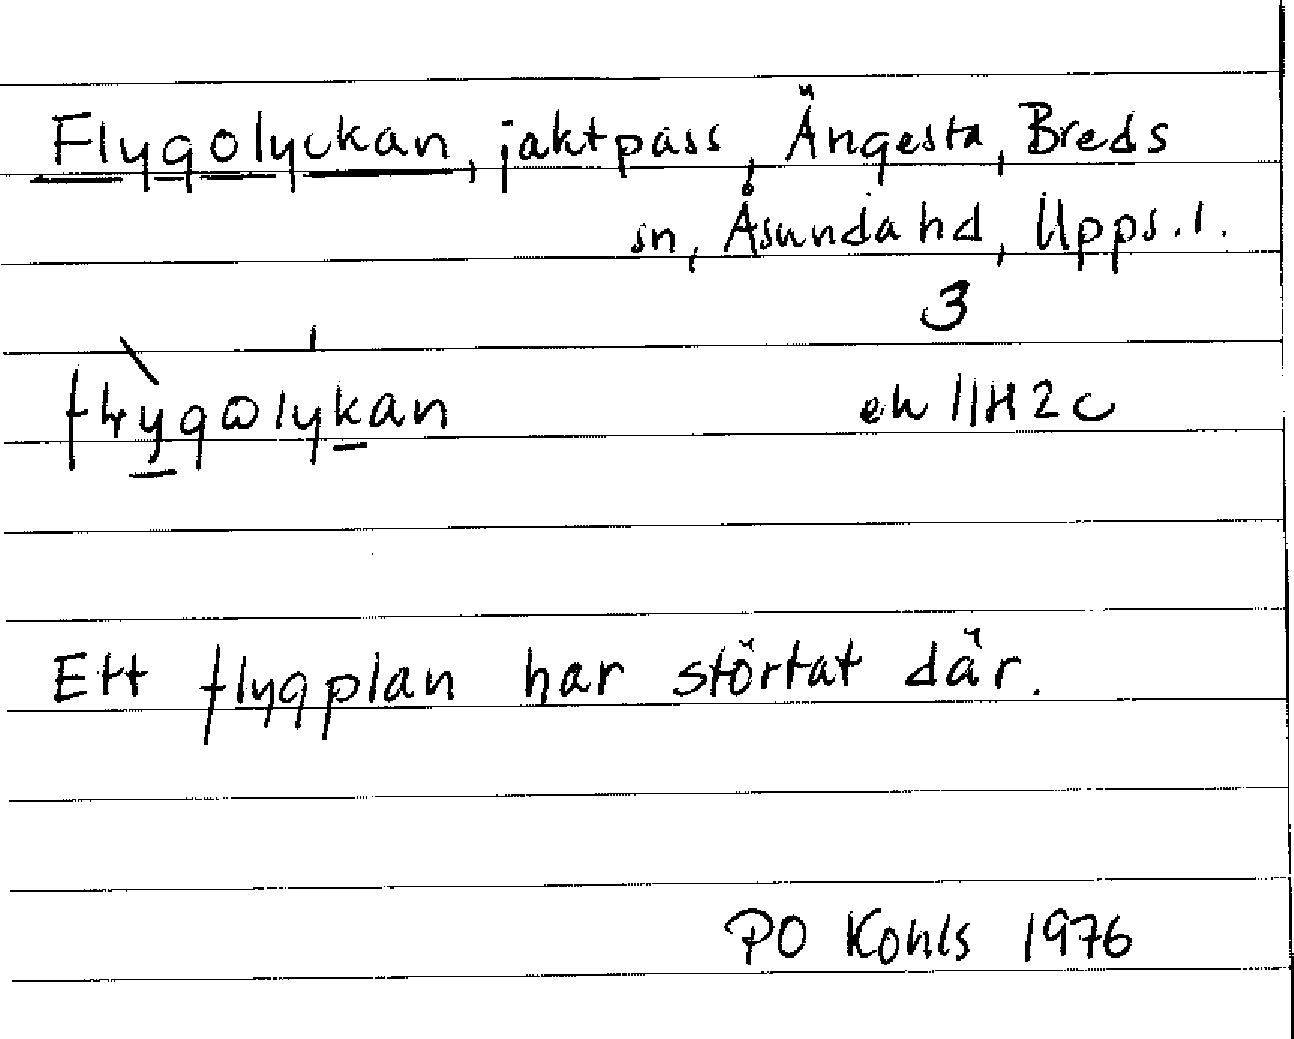 Flygolyckan, jaktpass, Ängesta, Breds
sn, Åsunda hd, Upps. l.
3
flygolykan ek 11H2c
Ett flygplan har störtat där.
PO Kohls 1976